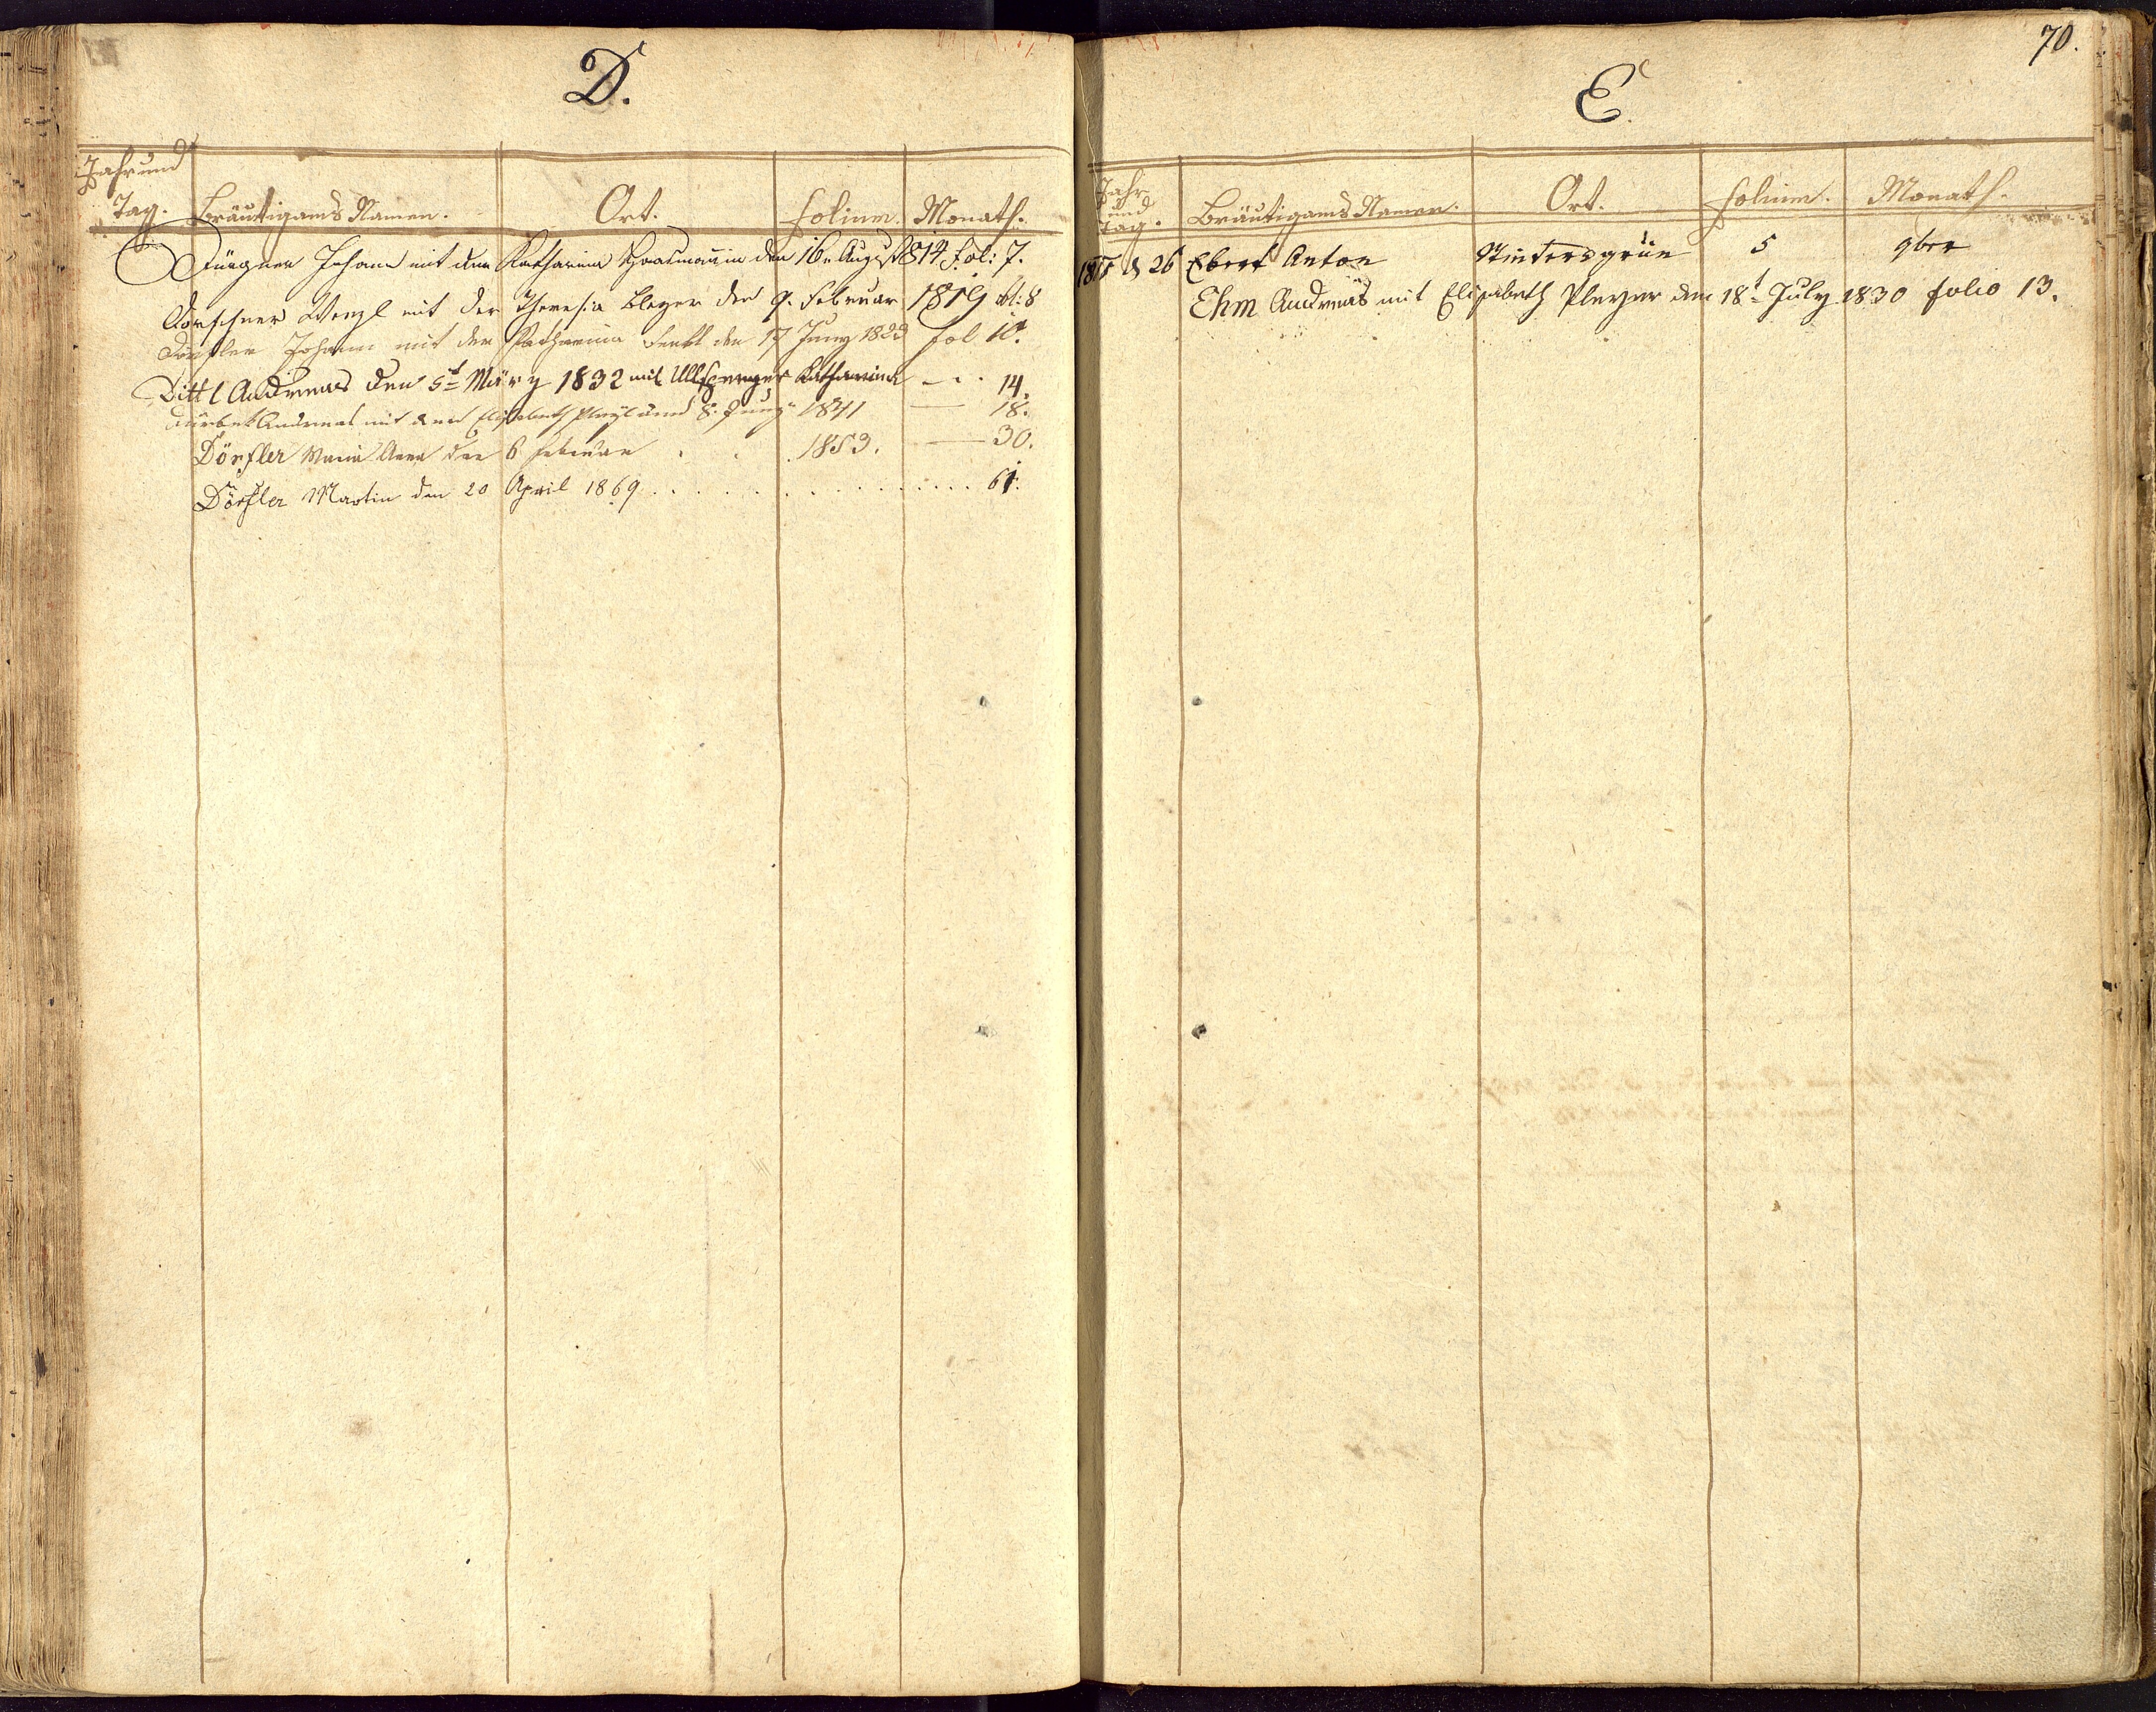 D.
Jahr und
Tag. Bräutigams Namen. Ort. Folium. Monath.
Johann mit der Katharina den 16n August 814 Fol: 7.
Dorschner Wenzl mit der Theresia Bleyer den 9. Februar 1819 fol: 8
Dörfler Johann mit der Katharina den 17 Juny 1823 fol 10.
Dittl Andreas den 5t März 1832 mit Ullsperger Katharina — 14.
Andreas mit der Elisabeth 8. Juny 1841 — 18.
Dörfler Maria Anna den 6 Februar . . 1853. — 30.
Dörfler Martin den 20 April 1869 . . . . . . . . . . . . 61.
70.
E.
Jahr
und
Tag. Bräutigams Namen. Ort. Folium. Monath.
26 Ebert Anton Wintersgrün 5 9ber
Ehm Andreas mit Elisabeth Pleyer den 18t July 1830 folio 13.